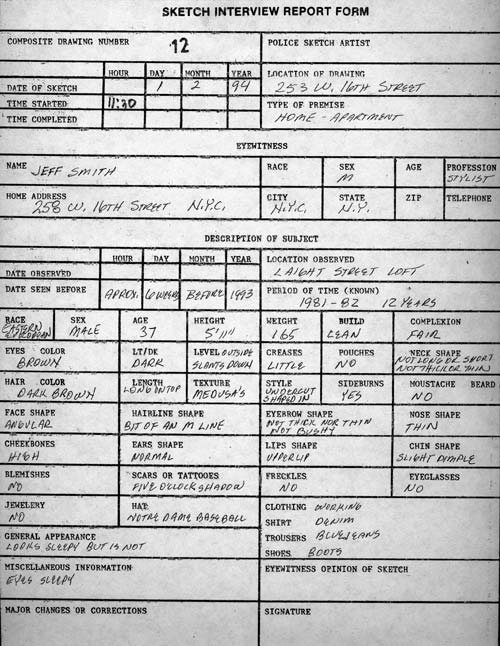 SKETCH INTERVIEW REPORT FORM
COMPOSITE DRAWING NUMBER 12 POLICE SKETCH ARTIST
HOUR DAY MONTH YEAR LOCATION OF DRAWING
DATE OF SKETCH 1 2 94 253 W. 16TH STREET
TIME STARTED 11:30 TYPE OF PREMISE
TIME COMPLETED HOME - APARTMENT
EYEWITNESS
NAME JEFF SMITH RACE SEX M AGE PROFESSION STYLIST
HOME ADDRESS CITY STATE ZIP TELEPHONE
258 W. 16TH STREET N.Y.C. N.Y.C. N.Y.
DESCRIPTION OF SUBJECT
HOUR DAY MONTH YEAR LOCATION OBSERVED
DATE OBSERVED LAIGHT STREET LOFT
DATE SEEN BEFORE APROX. 6 WEEKS BEFORE 1993 PERIOD OF TIME (KNOWN)
1981-82 12 YEARS
RACE SEX AGE HEIGHT WEIGHT BUILD COMPLEXION
EASTERN EUROPEAN MALE 37 5'11" 165 LEAN FAIR
EYES COLOR LT/DK LEVEL OUTSIDE CREASES POUCHES NECK SHAPE
BROWN DARK SLANTS DOWN LITTLE NO NOT LONG OR SHORT NOT THICK OR THIN
HAIR COLOR LENGTH TEXTURE STYLE SIDEBURNS MOUSTACHE BEARD
DARK BROWN LONG ON TOP MEDUSA'S UNDERCUT SHAPED IN YES NO
FACE SHAPE HAIRLINE SHAPE EYEBROW SHAPE NOSE SHAPE
ANGULAR BIT OF AN M LINE NOT THICK NOR THIN NOT BUSHY THIN
CHEEKBONES EARS SHAPE LIPS SHAPE CHIN SHAPE
HIGH NORMAL UPPER LIP SLIGHT DIMPLE
BLEMISHES SCARS OR TATTOOES FRECKLES EYEGLASSES
NO FIVE O'CLOCK SHADOW NO NO
JEWELERY HAT CLOTHING WORKING
NO NOTRE DAME BASEBALL SHIRT DENIM
GENERAL APPEARANCE TROUSERS BLUEJEANS
LOOKS SLEEPY BUT IS NOT SHOES BOOTS
MISCELLANEOUS INFORMATION EYEWITNESS OPINION OF SKETCH
EYES SLEEPY
MAJOR CHANGES OR CORRECTIONS SIGNATURE